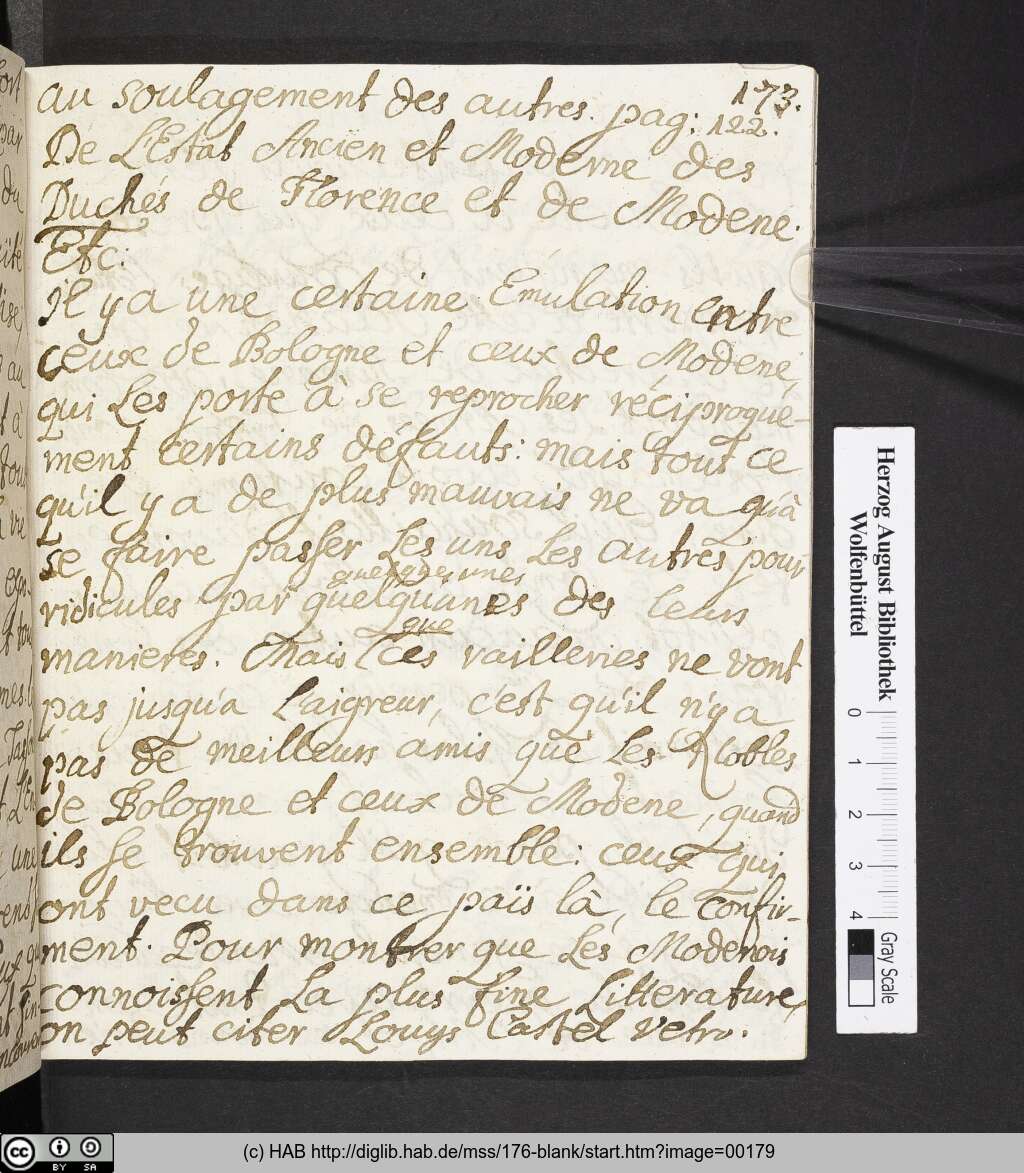 173.
au soulagement des autres. pag: 122.
De L'Estat Ancien et Moderne des
Duchés de Florence et de Modene.
Etc:
il y a une certaine Emulation entre
ceux de Bologne et ceux de Modene,
qui Les porte à se reprocher réciproque-
ment certains défauts: mais tout ce
qu'il y a de plus mauvais ne va qu'à
se faire passer Les uns Les autres pour
ridicules par quelqunes des leurs
manieres. Mais que ces railleries ne vont
pas jusqu'a L'aigreur, c'est qu'il n'y a
pas de meilleurs amis que Les Nobles
de Bologne et ceux de Modene, quand
ils se trouvent ensemble: ceux qui
ont vecu dans ce païs là, le confir-
ment. Pour montrer que Les Modenois
connoissent La plus fine Litterature,
on peut citer Louys Castel vetro.
Herzog August Bibliothek
Wolfenbüttel
0 1 2 3 4
Gray Scale
cc BY SA
(c) HAB http://diglib.hab.de/mss/176-blank/start.htm?image=00179